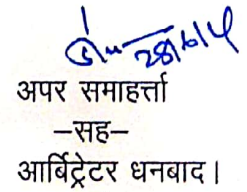 28/6/14
अपर समाहर्त्ता
–सह–
आर्बिट्रेटर धनबाद।